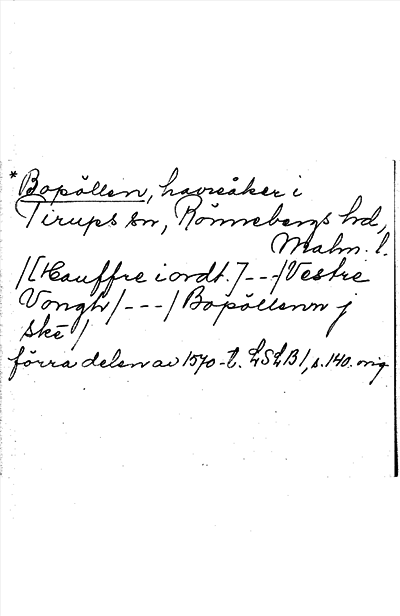 * Bopöllen, havreåker i
Tirups sn, Rönnebergs hd,
Malm. l.
/[Hauffre iordt.]---/Vestre
Vongh/---/Bopöllenn j
ske/
förra delen av 1570-t. LSLB1, s. 140. orig